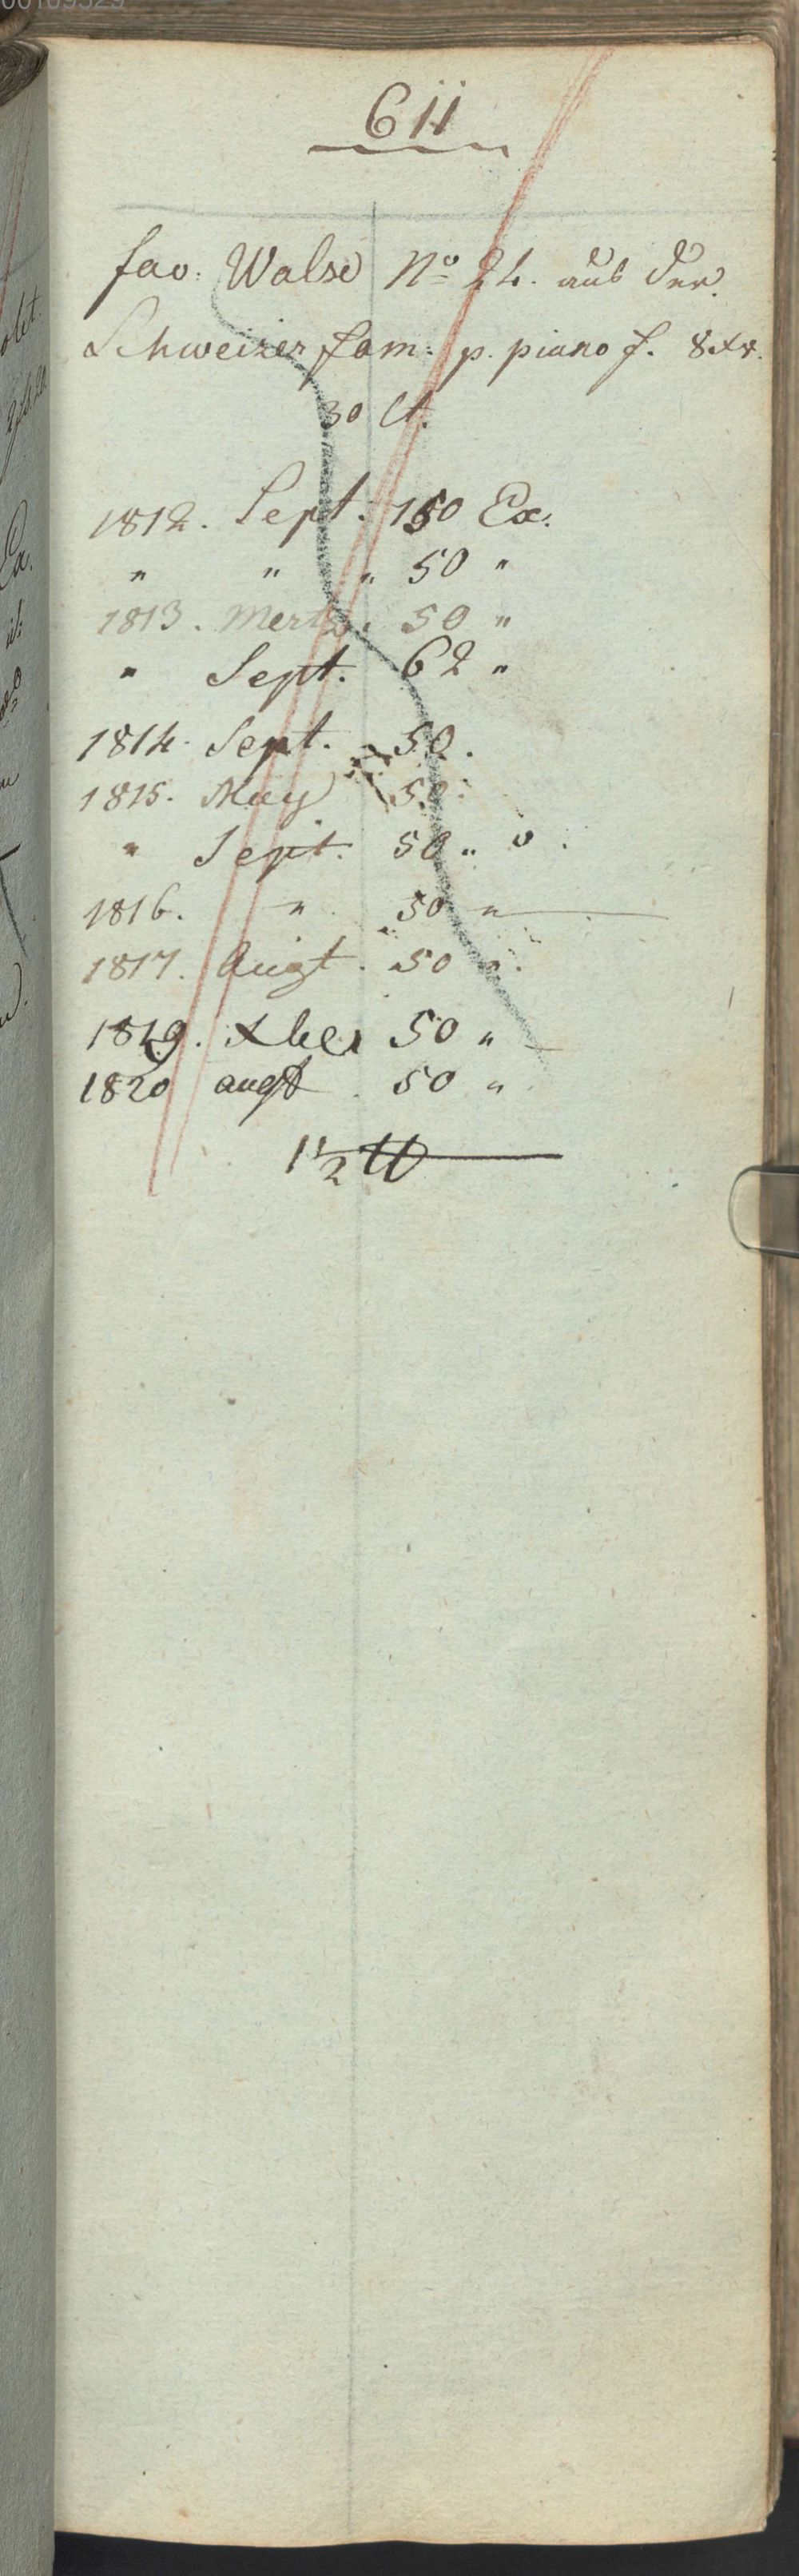 611
fav. Walse No 24. aus der
Schweizer fam: p. piano f. 8 xr.
30 ct.
1812. Sept. 150 Ex.
" " " 50 "
1813. Mertz. 50 "
" Sept. 62 "
1814. Sept. 50.
1815. May 50.
" Sept. 50 "
1816. " 50 "
1817. Augt. 50 "
1819. xber 50 "
1820 augst 50 "
1 1/2 ℔